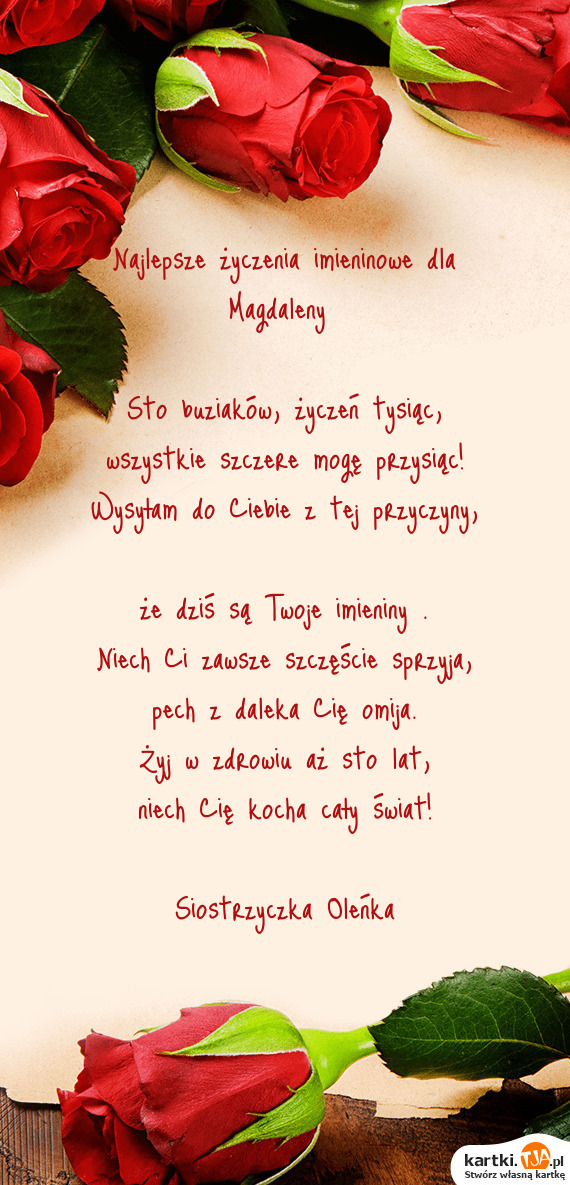 Najlepsze życzenia imieninowe dla
Magdaleny
Sto buziaków, życzeń tysiąc,
wszystkie szczere mogę przysiąc!
Wysyłam do Ciebie z tej przyczyny,
że dziś są Twoje imieniny .
Niech Ci zawsze szczęście sprzyja,
pech z daleka Cię omija.
Żyj w zdrowiu aż sto lat,
niech Cię kocha cały świat!
Siostrzyczka Oleńka
kartki.TJA.pl
Stwórz własną kartkę